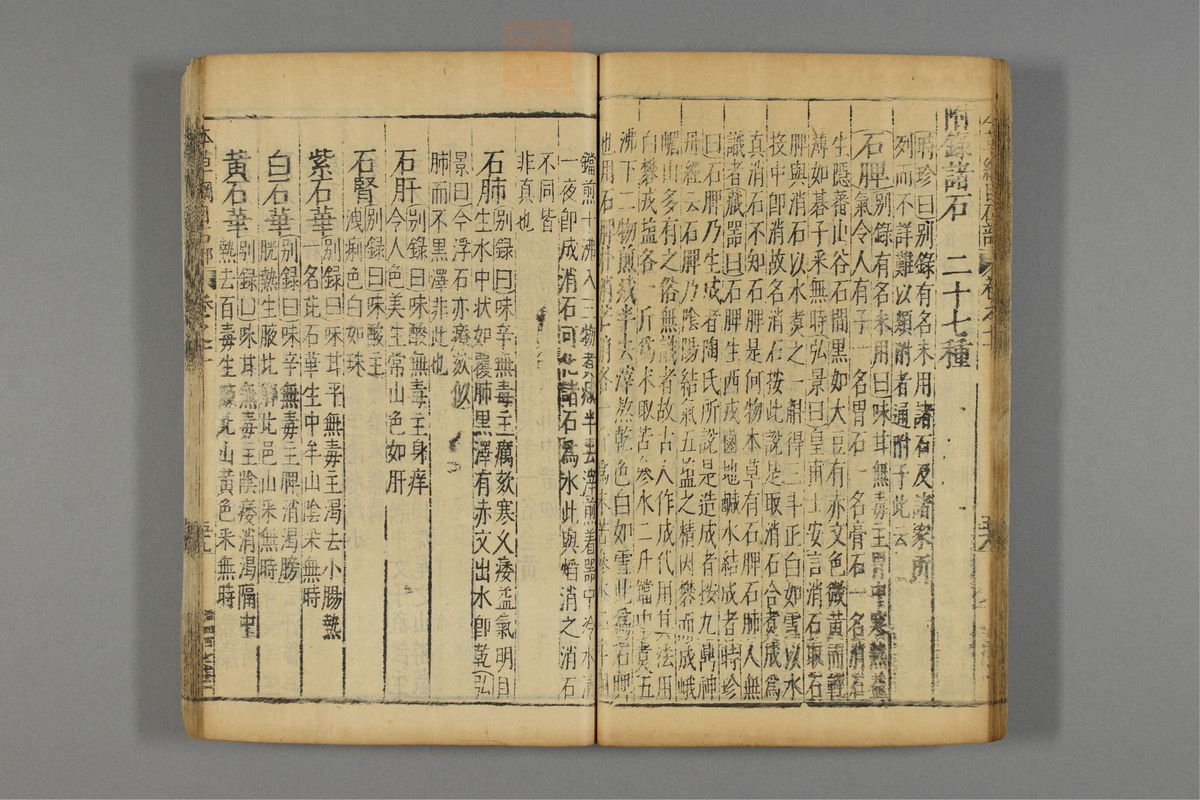 附錄諸石二十七種
時珍曰別錄有名未用諸石及諸家所
列而不詳難以類附者通附于此云
石脾別錄有名未用曰味甘無毒主胃中寒熱益
氣令人有子一名胃石一名膏石一名消石
生隱蕃山谷石間黑如大豆有赤文色微黃而輕
薄如碁子采無時弘景曰皇甫士安言消石取石
脾與消石以水煮之一斛得三斗正白如雪以水
投中即消故名消石按此說是取消石合煮成爲
真消石不知石脾是何物本草有石脾石肺人無
識者藏器曰石脾生西戎鹵地鹹水結成者時珍
曰石脾乃生成者陶氏所說是造成者按九鼎神
丹經云石脾乃陰陽結氣五鹽之精因礬而成峨
嵋山多有之俗無識者故古人作成代用其法用
白礬戎鹽各一斤爲末取苦參水二升鐺中煮五
沸下二物煎減半去滓熬乾色白如雪此爲石脾
也用石脾
鐺煎十沸入三物煮減半去滓煎着器中冷水漬
一夜即成消石可化諸石爲水此與焰消之消石
不同皆
非真也
石肺別錄曰味辛無毒主癘欬寒久痿益氣明目
生水中狀如覆肺黑澤有赤文出水即乾弘
景曰今浮石亦療欬似
肺而不黑澤非此也
石肝別錄曰味酸無毒主身痒
令人色美生常山色如肝
石腎別錄曰味酸主
洩痢色白如珠
紫石華別錄曰味甘平無毒主渴去小腸熱
一名茈石華生中牟山陰采無時
白石華別錄曰味辛無毒主脾消渴膀
胱熱生腋北鄉北邑山采無時
黃石華別錄曰味甘無毒主陰痿消渴膈中
熱去百毒生腋北山黃色采無時